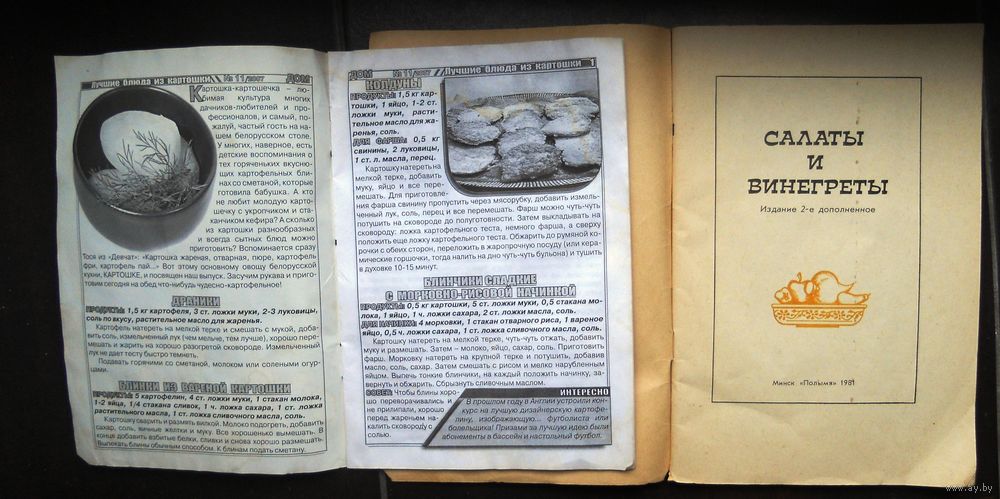 Лучшие блюда из картошки № 11/2007 ДОМ
Картошка-картошечка – лю-
бимая культура многих
дачников-любителей и про-
фессионалов, и самый, по-
жалуй, частый гость на на-
шем белорусском столе.
У многих, наверное, есть
детские воспоминания о
тех горяченьких вкусню-
щих картофельных бли-
нах со сметаной, которые
готовила бабушка. А кто
не любит молодую карто-
шечку с укропчиком и ста-
канчиком кефира? А сколько
из картошки разнообразных
и всегда сытных блюд можно
приготовить? Вспоминается сразу
Тося из «Девчат»: «Картошка жареная, отварная, пюре, картофель
фри, картофель пай...» Вот этому основному овощу белорусской
кухни, КАРТОШКЕ, и посвящен наш выпуск. Засучим рукава и приго-
товим сегодня на обед что-нибудь чудесно-картофельное!
ДРАНИКИ
ПРОДУКТЫ: 1,5 кг картофеля, 3 ст. ложки муки, 2-3 луковицы,
соль по вкусу, растительное масло для жаренья.
Картофель натереть на мелкой терке и смешать с мукой, доба-
вить соль, измельченный лук (чем мельче, тем лучше), хорошо пере-
мешать и жарить на хорошо разогретой сковороде. Измельченный
лук не дает тесту быстро темнеть.
Подавать горячими со сметаной, молоком или солеными огур-
цами.
БЛИНКИ ИЗ ВАРЕНОЙ КАРТОШКИ
ПРОДУКТЫ: 5 картофелин, 4 ст. ложки муки, 1 стакан молока,
1-2 яйца, 1/4 стакана сливок, 1 ч. ложка сахара, 1 ст. ложка
растительного масла, 1 ст. ложка сливочного масла, соль.
Картошку сварить и размять вилкой. Молоко подогреть, добавить
сахар, соль, яичные желтки и муку. Все хорошенько вымешать. В
конце добавить взбитые белки, сливки и снова хорошо размешать.
Выпекать блины обычным способом. К блинам подать сметану.
ДОМ № 11/2007 Лучшие блюда из картошки 1
КОЛДУНЫ
ПРОДУКТЫ: 1,5 кг кар-
тошки, 1 яйцо, 1-2 ст.
ложки муки, расти-
тельное масло для жа-
ренья, соль.
ДЛЯ ФАРША: 0,5 кг
свинины, 2 луковицы,
1 ст. л. масла, перец.
Картошку натереть на
мелкой терке, добавить
муку, яйцо и все пере-
мешать. Для приготовле-
ния фарша свинину пропустить через мясорубку, добавить измель-
ченный лук, соль, перец и все перемешать. Фарш можно чуть-чуть
потушить на сковороде до полуготовности. Затем выкладывать на
сковороду: ложка картофельного теста, немного фарша, а сверху
положить еще ложку картофельного теста. Обжарить до румяной ко-
рочки с обеих сторон, переложить в жаропрочную посуду (или кера-
мические горшочки, тогда налить на дно чуть-чуть бульона) и тушить
в духовке 10-15 минут.
БЛИНЧИКИ СЛАДКИЕ
С МОРКОВНО-РИСОВОЙ НАЧИНКОЙ
ПРОДУКТЫ: 0,5 кг картошки, 5 ст. ложки муки, 0,5 стакана мо-
лока, 1 яйцо, 1 ч. ложка сахара, 2 ст. ложки масла, соль.
ДЛЯ НАЧИНКИ: 4 моркови, 1 стакан отварного риса, 1 вареное
яйцо, 0,5 ч. ложки сахара, 1 ст. ложка сливочного масла, соль.
Картошку натереть на мелкой терке, чуть-чуть отжать, добавить
муку и размешать. Затем – молоко, яйцо, сахар, соль. Приготовить
фарш. Морковку натереть на крупной терке и потушить, добавив
масло, соль, сахар. Затем смешать с рисом и мелко нарубленным
яйцом. Выпечь тонкие блинчики, на каждый положить начинку, за-
вернуть и обжарить. Сбрызнуть сливочным маслом.
СОВЕТ. Чтобы блины хоро-
шо переворачивались и
не прилипали, хорошо
перед жареньем на-
калить сковороду с
солью.
ИНТЕРЕСНО
В прошлом году в Англии устроили кон-
курс на лучшую дизайнерскую картофе-
лину, изображающую... футболиста или
болельщика! Призами за лучшую идею были
абонементы в бассейн и настольный футбол.
САЛАТЫ
И
ВИНЕГРЕТЫ
Издание 2-е дополненное
Минск «Полымя» 1981
www.ay.by